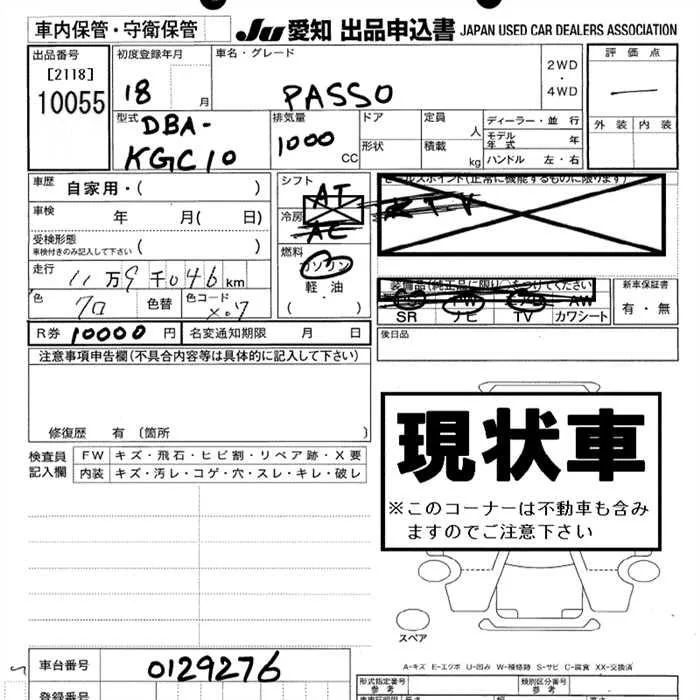 車内保管・守衛保管
JU 愛知 出品申込書 JAPAN USED CAR DEALERS ASSOCIATION
出品番号
[2118]
10055
初度登録年月
18 月
車名・グレード
PASSO
2WD
・
4WD
評価点
—
外装 内装
型式 DBA-
KGC10
排気量
1000
CC
ドア
形状
定員
人
積載
kg
ディーラー・並 行
モデル
年式 年
ハンドル 左・右
車歴 自家用・( )
車検 年 月( 日)
受検形態
車検付きのみ記入して下さい ( )
走行 11万9千046km
色 色替 色コード
シフト
AT
冷房
AC
燃料
ガソリン
軽・油
( ・ )
セールスポイント(正常に機能するものに限ります)
装備品(純正品に限り○をつけてください)
AW
SR ナビ TV カワシート
新車保証書
有・無
R券 10000 円
名変通知期限 月 日
後日品
注意事項申告欄(不具合内容等は具体的に記入して下さい)
修復歴 有 〔箇所 〕
検査員
記入欄
FW キズ・飛石・ヒビ割・リペア跡・X要
内装 キズ・汚レ・コゲ・穴・スレ・キレ・破レ
現状車
※このコーナーは不動車も含み
ますのでご注意下さい
スペア
A-キズ E-エクボ U-凹み W-補修跡 S-サビ C-腐食 XX-交換済
車台番号 0129276
登録番号
形式指定番号
参考
類別区分番号
参考
長さ 幅 高さ